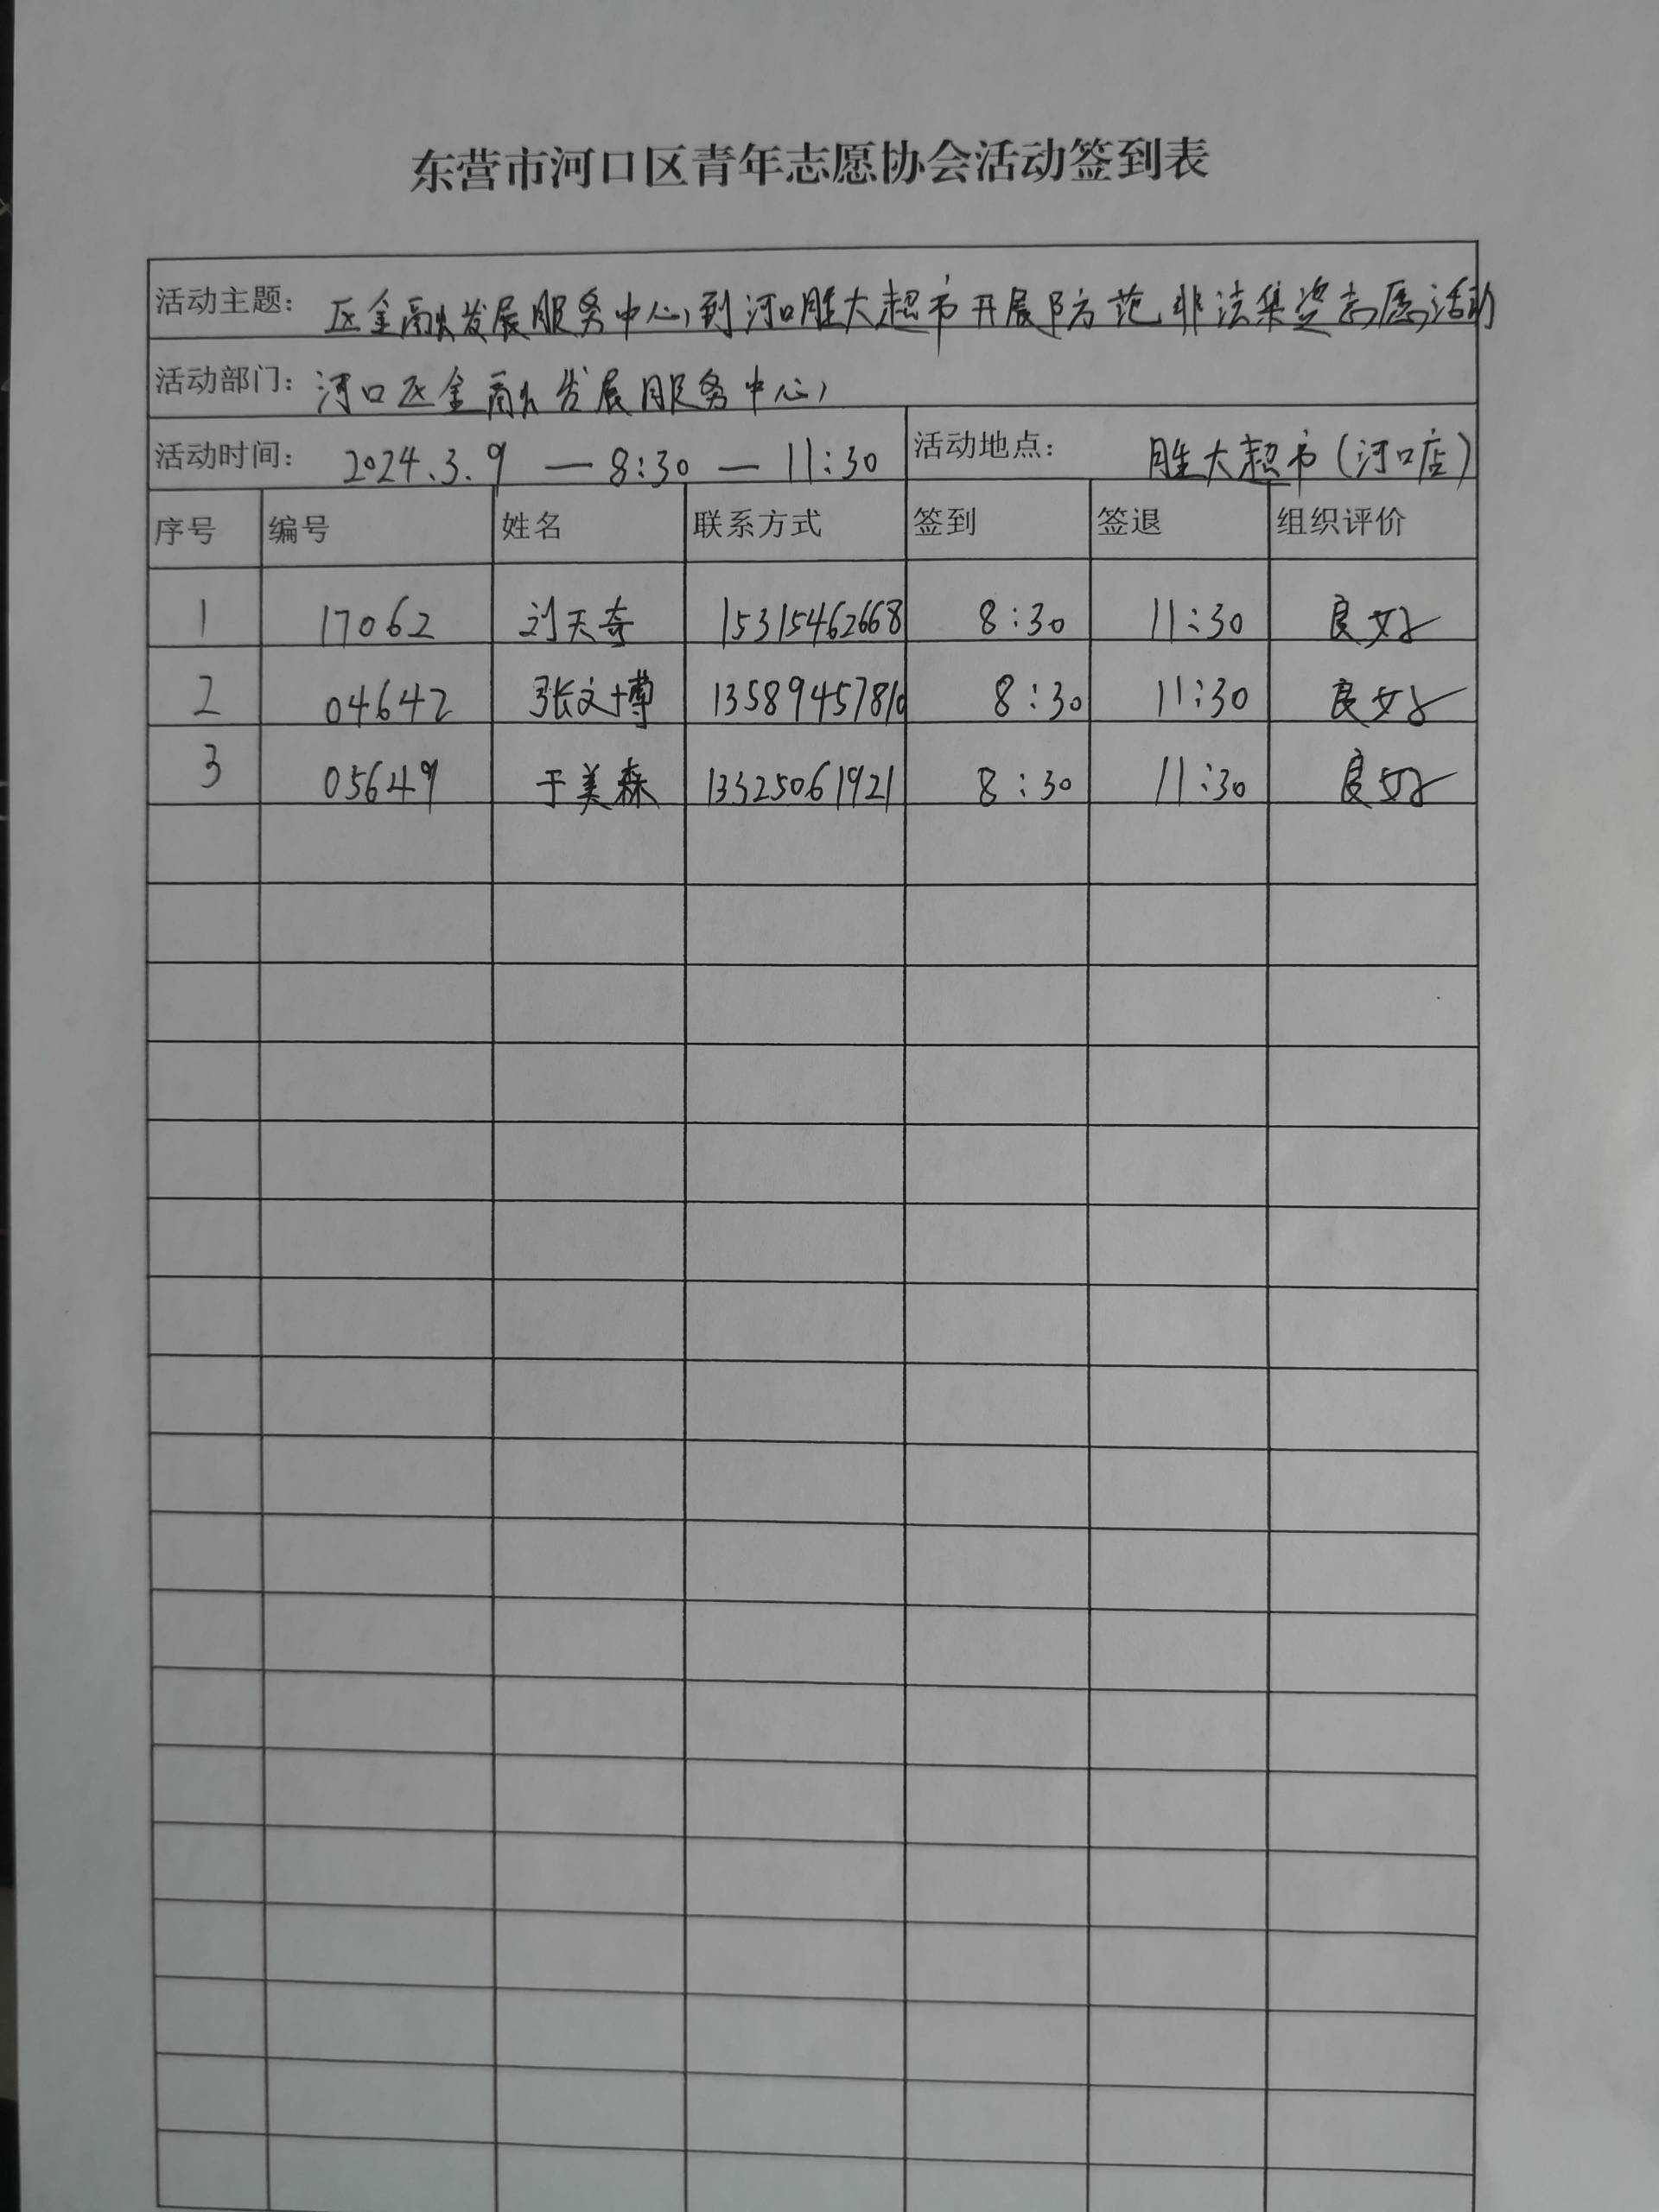 东营市河口区青年志愿协会活动签到表
活动主题： 区金融发展服务中心到河口胜大超市开展防范非法集资志愿活动
活动部门：河口区金融发展服务中心
活动时间： 2024.3.9 — 8:30 — 11:30 活动地点： 胜大超市（河口店）
序号 编号 姓名 联系方式 签到 签退 组织评价
1 17062 刘天奇 15315462668 8:30 11:30 良好
2 04642 张文博 13589457810 8:30 11:30 良好
3 05649 于美森 13325061921 8:30 11:30 良好